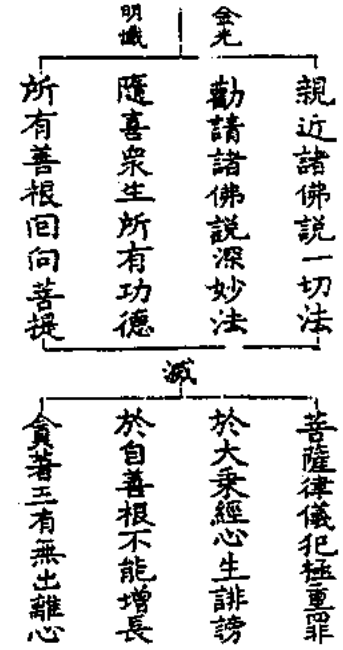 金光
明懺
親近諸佛說一切法
勸請諸佛說深妙法
隨喜衆生所有功德
所有善根回向菩提
滅
菩薩律儀犯極重罪
於大乘經心生誹謗
於自善根不能增長
貪著三有無出離心